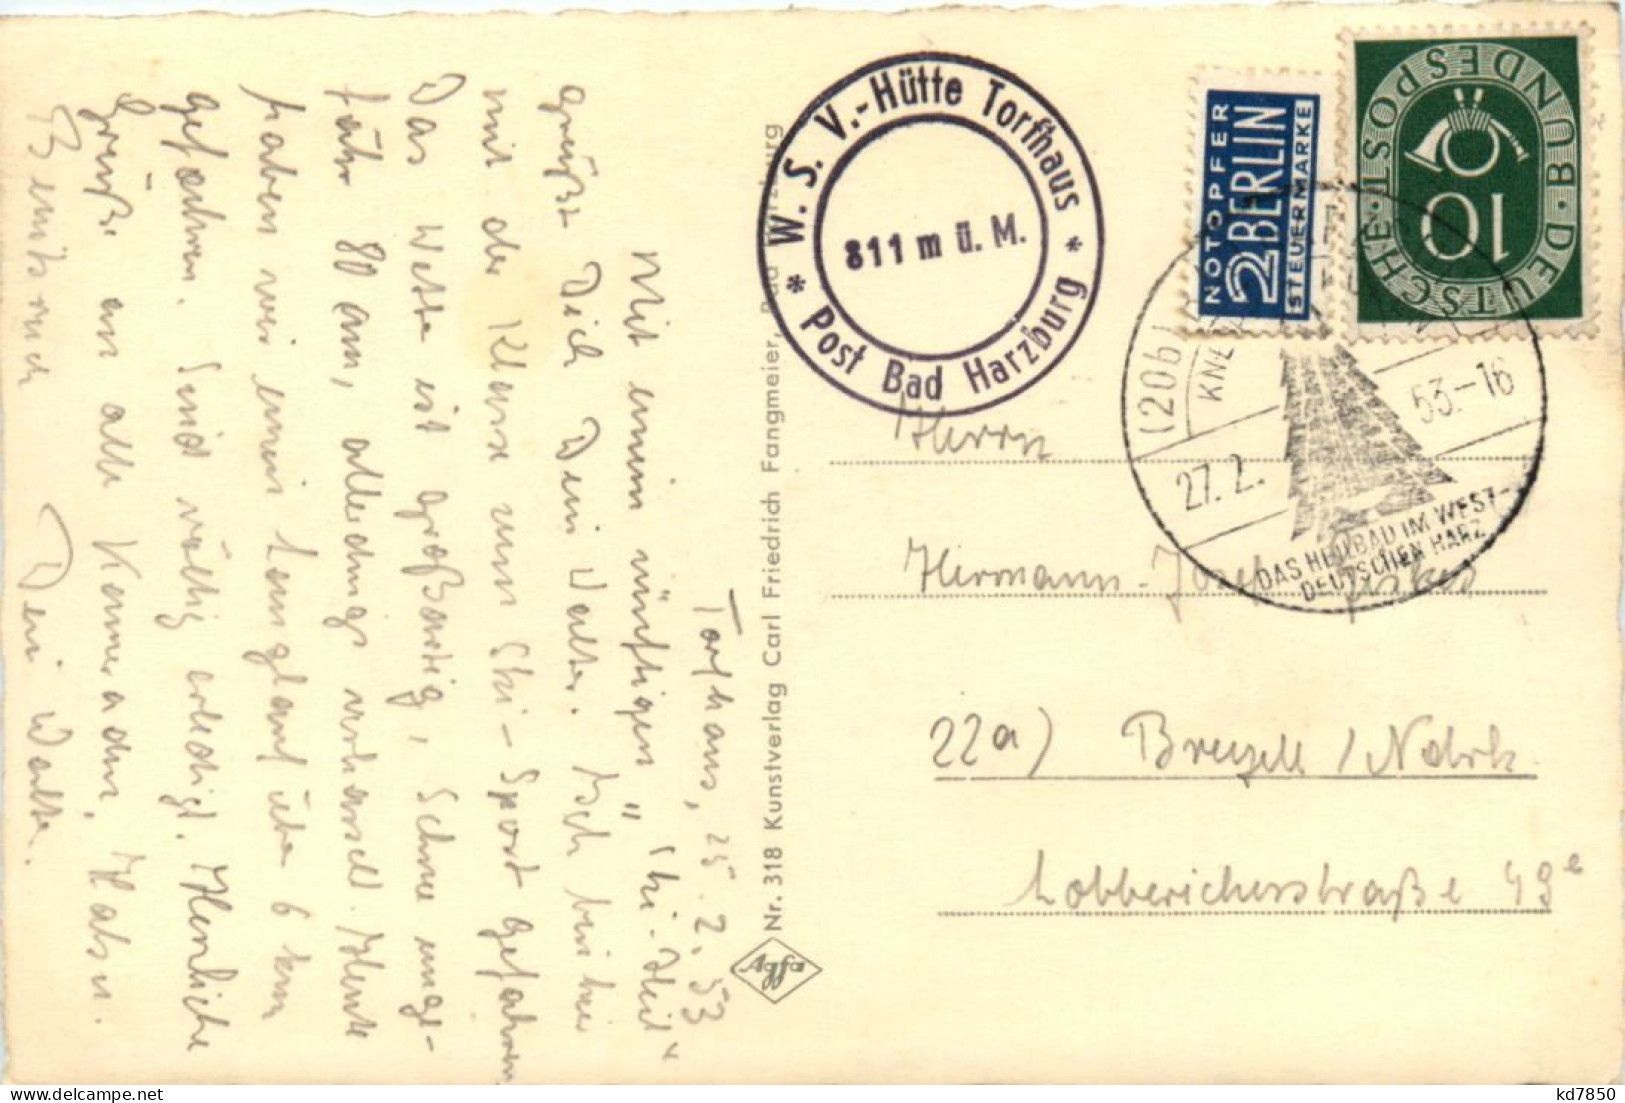 Torfhaus, 25.2.53
Mit einem zünftigen „Ski-Heil"
grüßt Dich Dein Walter. Ich bin hier
mit der Klasse zum Ski-Sport gefahren
Das Wetter ist großartig, Schnee unge-
fähr 80 cm, allerdings verharscht. Heute
haben wir einen Langlauf über 6 km
gefahren. Sind völlig erledigt. Herzliche
Grüße an alle Kameraden,
Dein Walter.
Nr. 318 Kunstverlag Carl Friedrich Fangmeier, Bad Harzburg
Agfa
* W. S. V.-Hütte Torfhaus *
811 m ü. M.
Post Bad Harzburg
NOTOPFER
2 BERLIN
STEUERMARKE
DEUTSCHE · BUNDESPOST
10
(20b)
27.2. 53.-16
DAS HEILBAD IM WEST-
DEUTSCHEN HARZ
Herrn
Hermann-Josef
22a) Breyell / Ndrh.
Lobbericherstraße 49e
kd7850